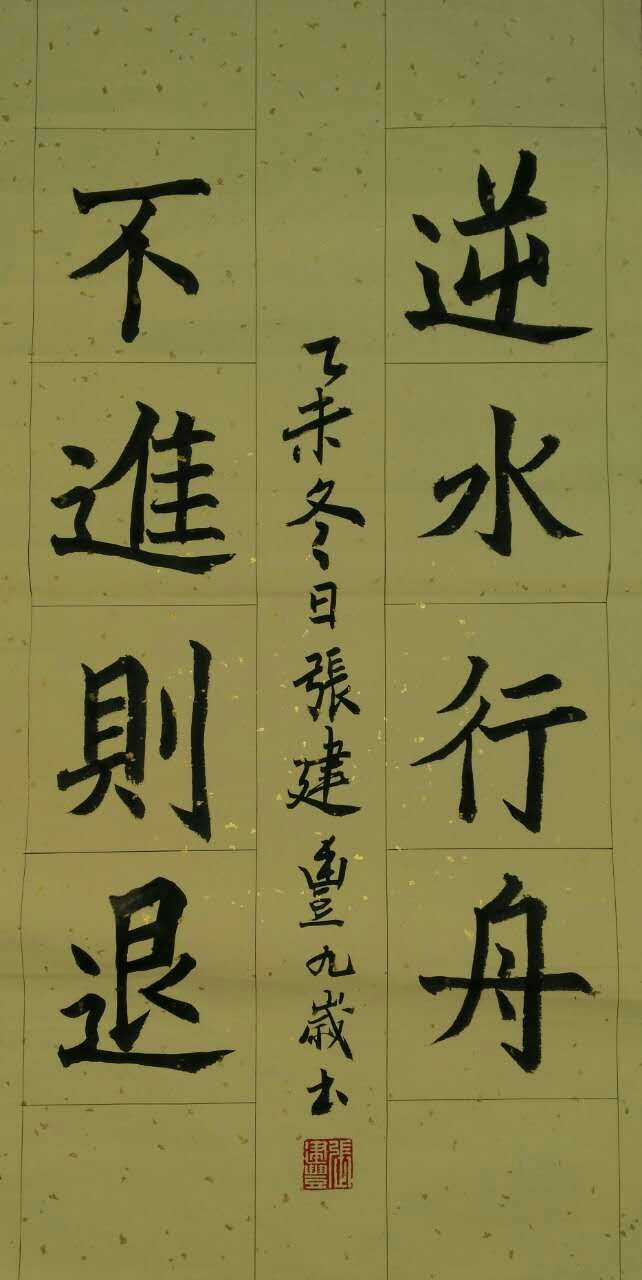 逆水行舟
不進則退
乙未冬日張建豐九歲书
張建豐